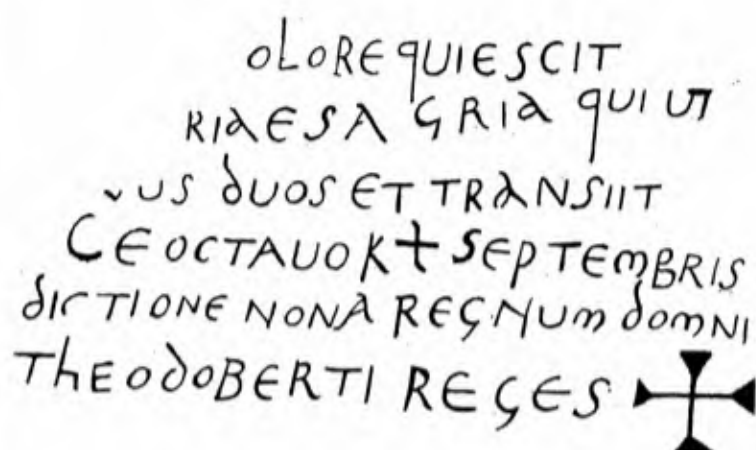 OLO REQUIESCIT
RIAE SAGRIA QUI
US DUOS ET TRANSIIT
CE OCTAVO K+ SEPTEMBRIS
DICTIONE NONA REGNUM DOMNI
THEODOBERTI REGES